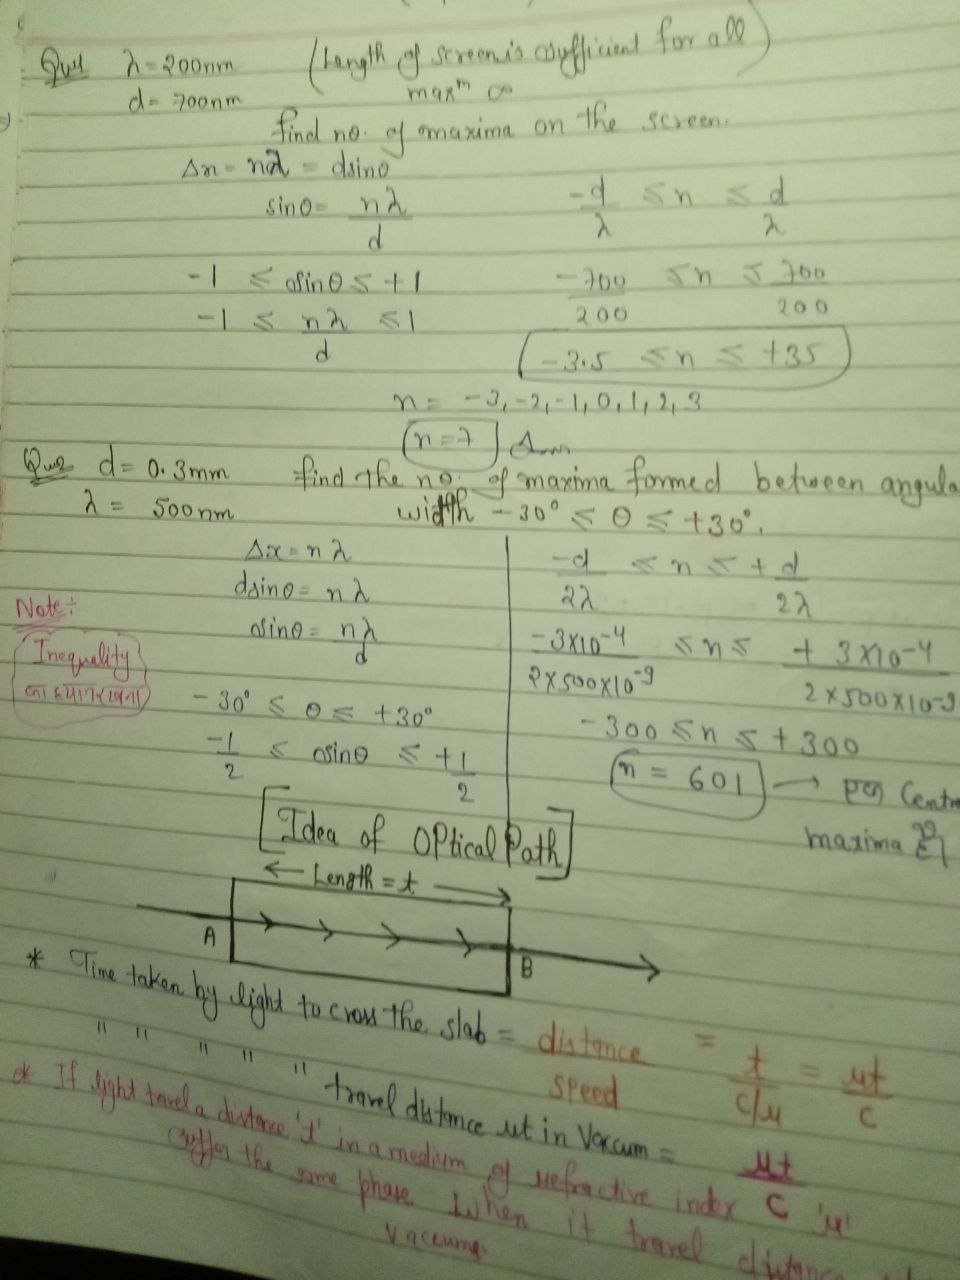 Que1 λ = 200nm (Length of screen is sufficient for all
d = 700nm maxm ∞
find no. of maxima on the screen.
Δn = nλ = dsinθ
sinθ = nλ/d
-1 ≤ sinθ ≤ +1
-1 ≤ nλ/d ≤ 1
-d/λ ≤ n ≤ d/λ
-700/200 ≤ n ≤ 700/200
-3.5 ≤ n ≤ +35
n = -3, -2, -1, 0, 1, 2, 3
n = 7 Ans
Que2 d = 0.3mm find the no. of maxima formed between angula
λ = 500nm width -30° ≤ θ ≤ +30°.
Δx = nλ
dsinθ = nλ
sinθ = nλ/d
-30° ≤ θ ≤ +30°
-1/2 ≤ sinθ ≤ +1/2
Note:
Inequality
का ध्यान रखना
-d/2λ ≤ n ≤ +d/2λ
-3×10-4/2×500×10-9 ≤ n ≤ +3×10-4/2×500×10-9
-300 ≤ n ≤ +300
n = 601 → एक Centra
maxima है
[Idea of Optical Path]
← Length = t →
A
B
* Time taken by light to cross the slab = distance/speed = t/c/μ = μt/c
" " " " " travel distance μt in Vaccum = μt/c
* If light travel a distance 't' in a medium of refractive index 'μ'
suffer the same phase when it travel distance
vaccume.